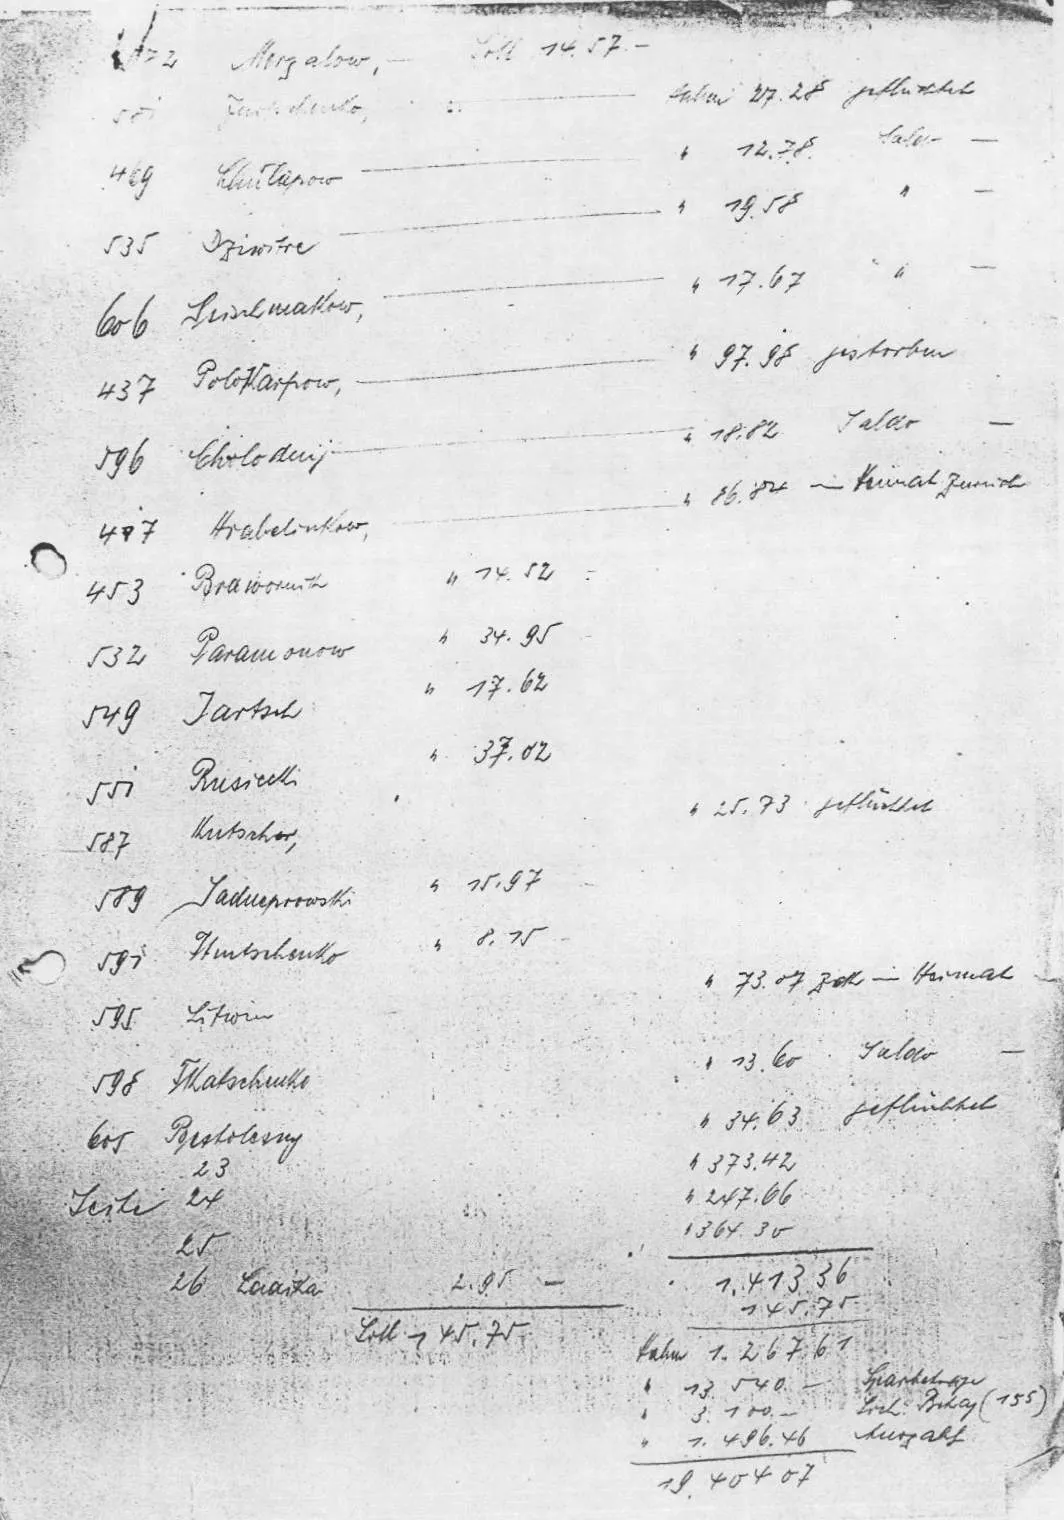 572 Morgalow, — Soll 14.57 —
581 Jurtschenko, — Haben 27.28 geflüchtet
469 — " 12.78 Saldo —
535 Dziwitre — " 19.58 " —
606 Leischmakow, — " 17.67 " —
437 Polikarpow, — " 97.98 gestorben
596 Cholodnij — " 18.82 Saldo —
417 Hrabelinkow, — " 86.84 in Heimat zurück
453 Brawornik " 14.52
532 Paramonow " 34.95
549 Jartsch " 17.62
551 Rusiecki " 37.02
587 Kutscher, " 25.73 geflüchtet
589 Sadneprowski " 15.97 —
591 Kutschenko " 8.15 —
595 Litwin " 73.07 zck in Heimat —
598 Tkatschenko " 13.60 Saldo —
605 Bestolesny " 34.63 geflüchtet
23 " 373.42
Seite 24 " 247.66
25 " 364.30
26 2.95 — 1.413.36
145.75
Soll 145.75
Haben 1.267.61
" 13.540.— Sparbeträge
" 3.100.— (155)
" 1.496.46 Auszahl
19.404.07